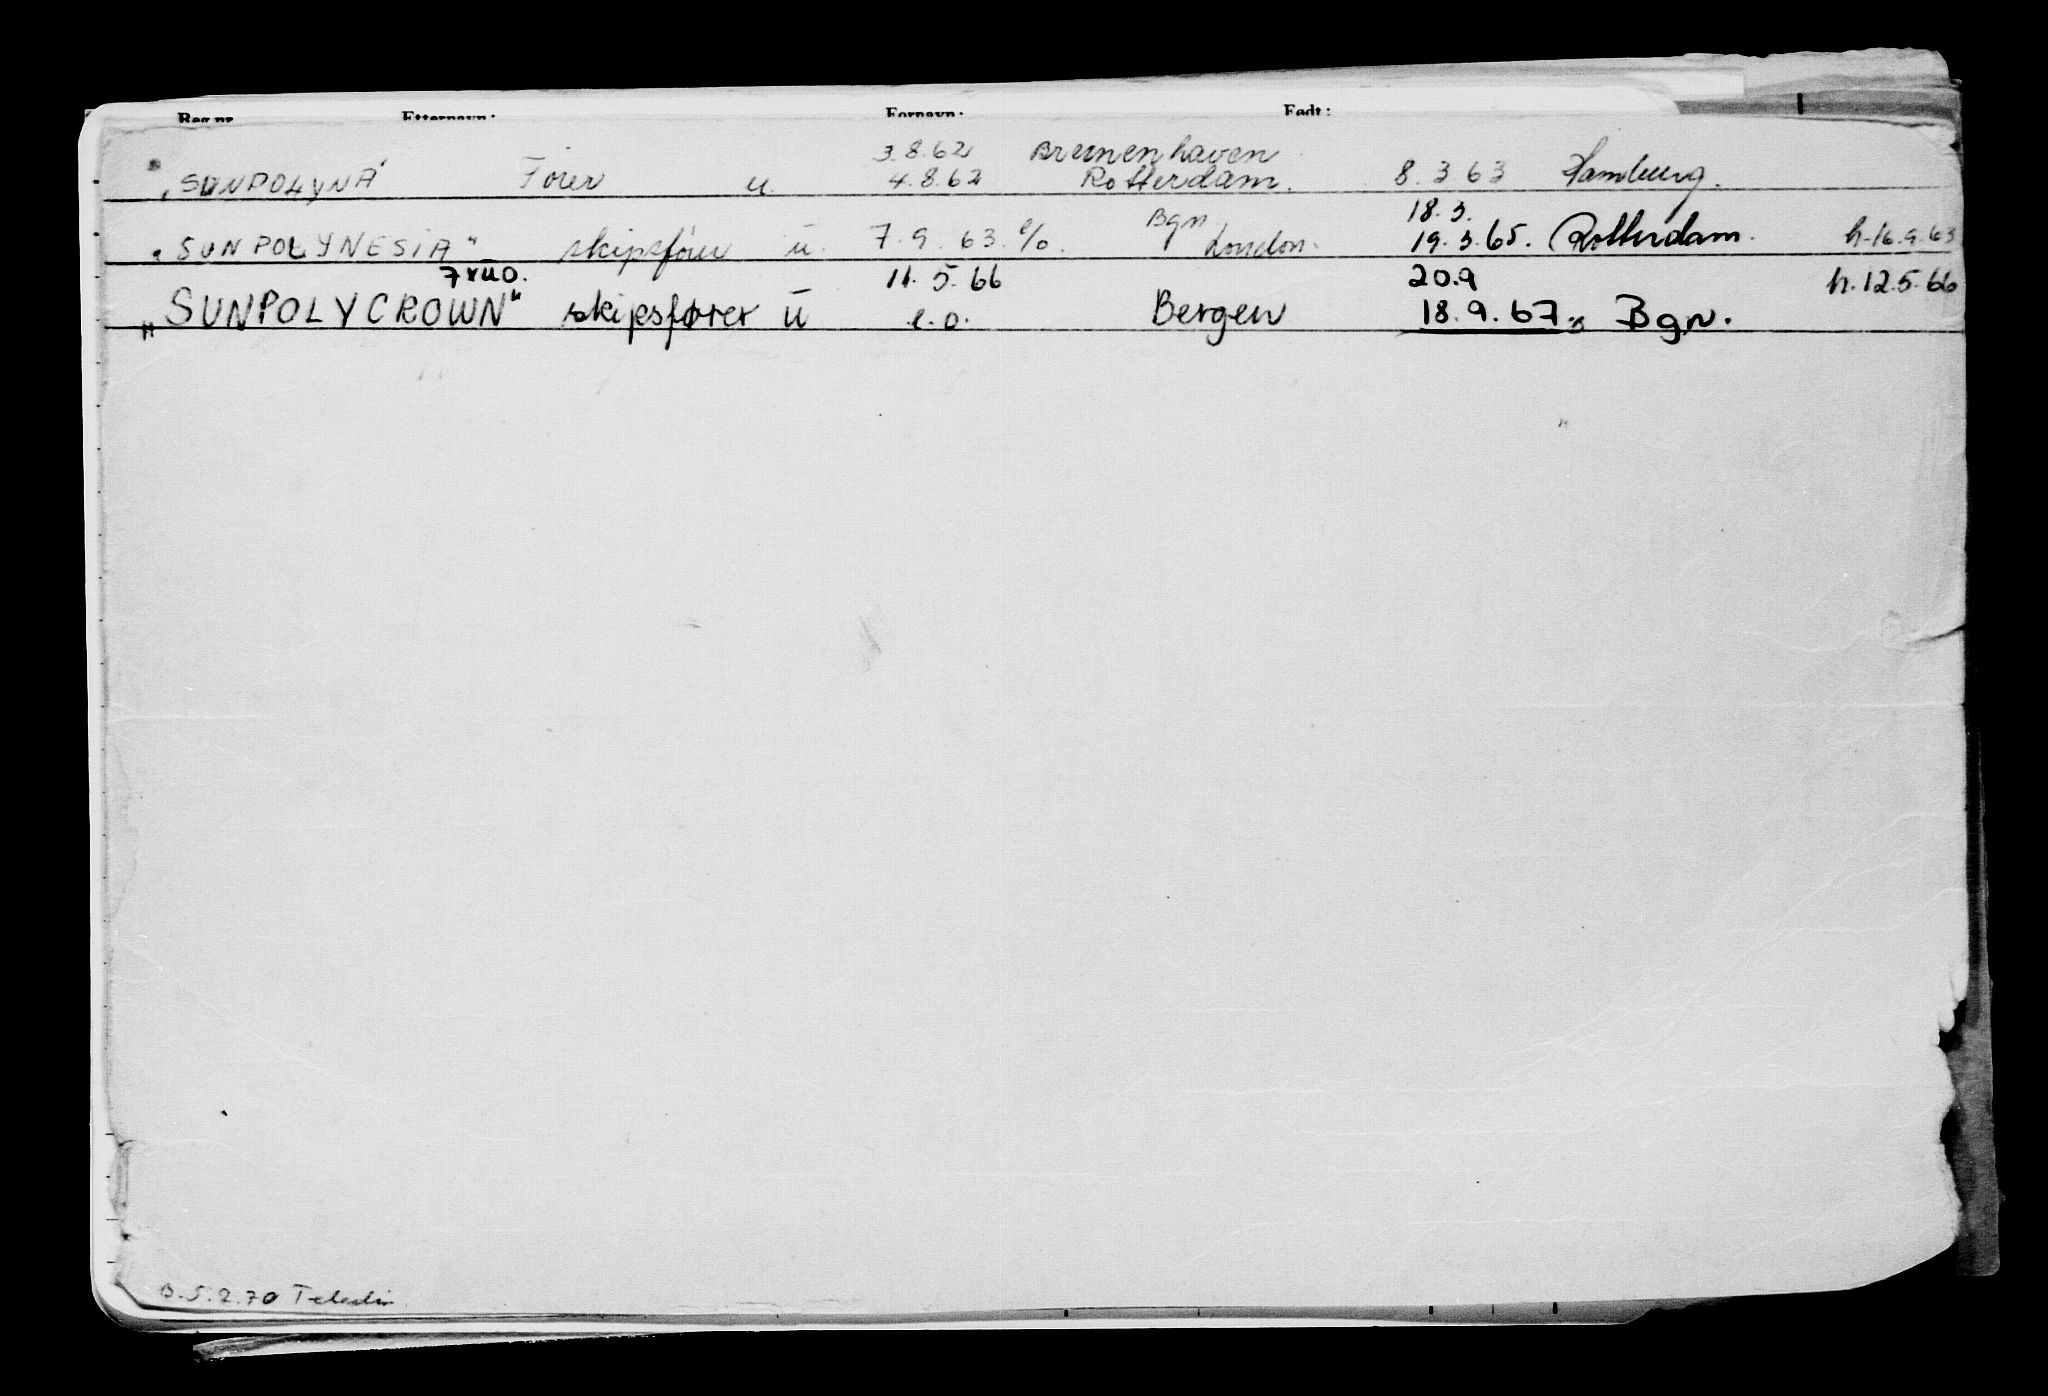 Reg.nr. Etternavn: Fornavn: Født:
3.8.62 Bremenhaven
"SUNPOLYNA" Fører u. 4.8.62 Rotterdam. 8.3 63 Hamburg.
Bgn 18.3.
"SUNPOLYNESIA" skipsfører u. 7.9.63. e/o. London. 19.3.65. Rotterdam. h.16.9.63
7xuo. 11.5.66 20.9 h.12.5.66
"SUNPOLYCROWN" skipsfører u e.o. Bergen 18.9.67. Bgn.
5.2.70